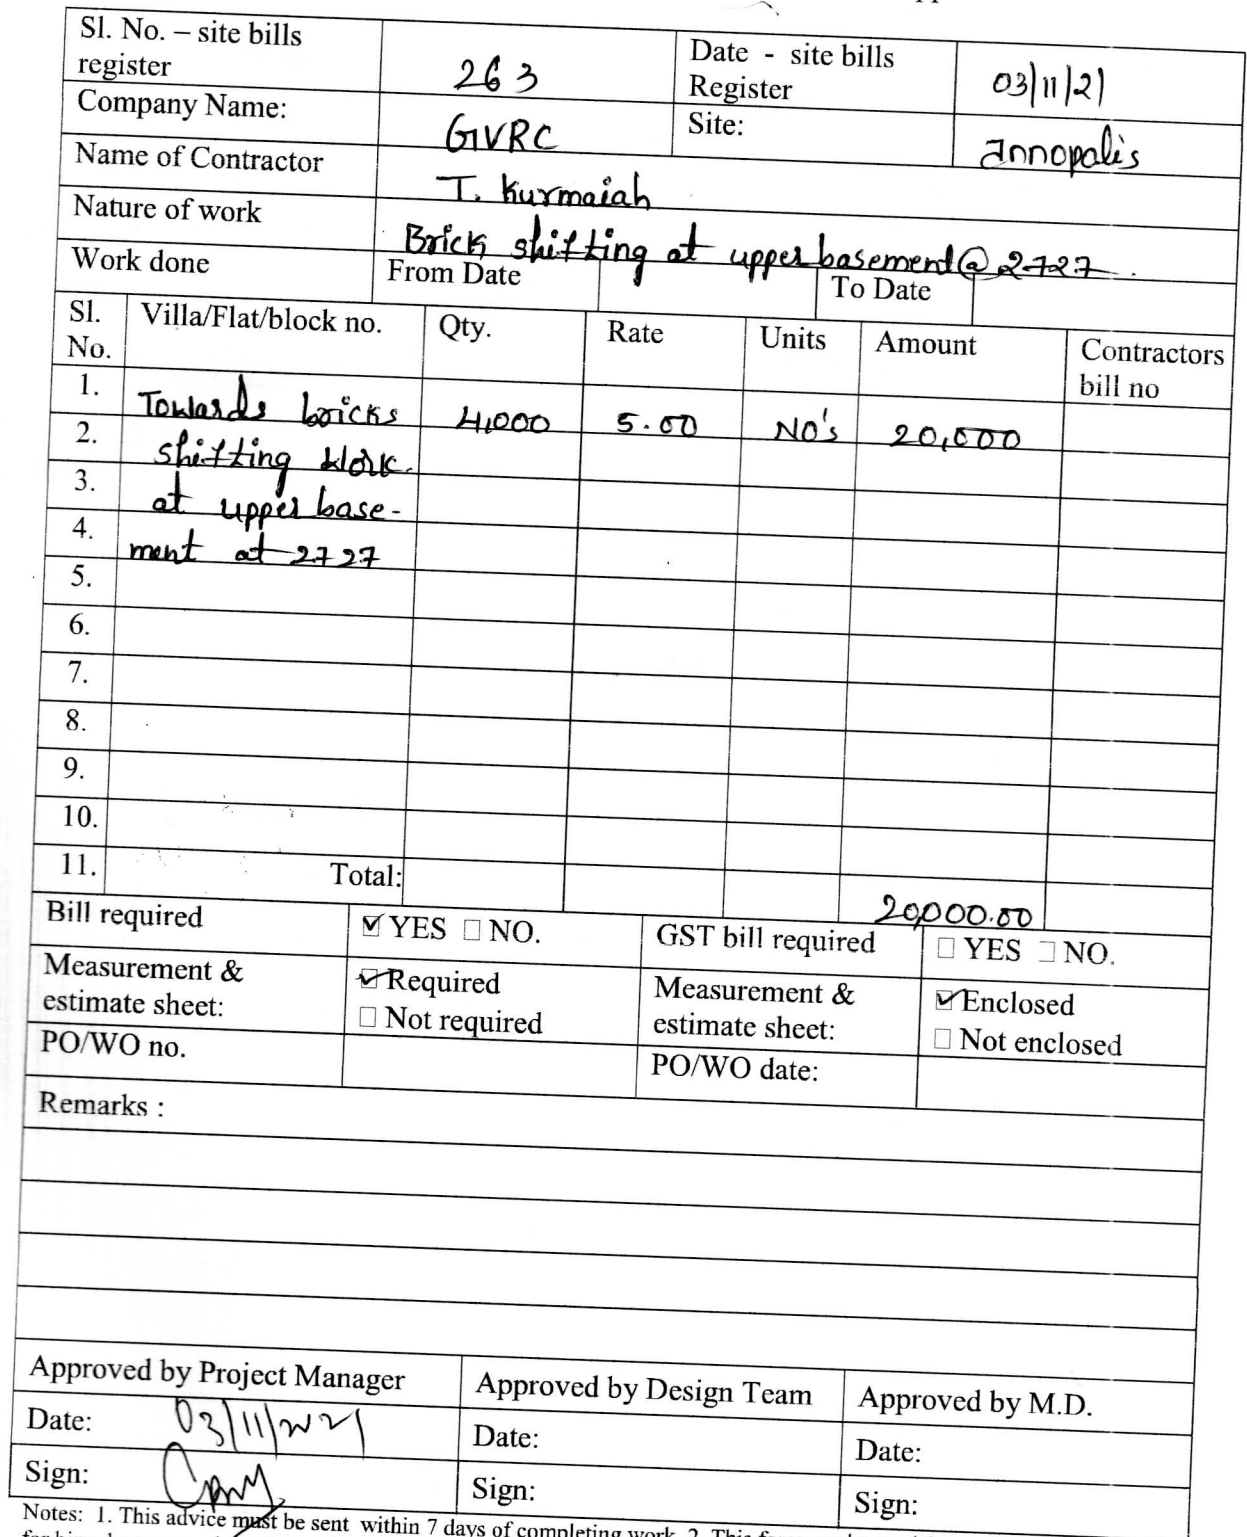 Sl. No. – site bills register 263 Date - site bills Register 03/11/21
Company Name: GVRC Site: Innopolis
Name of Contractor T. Kurmaiah
Nature of work Brick shifting at upper basement @ 2727.
Work done From Date To Date
Sl. No. Villa/Flat/block no. Qty. Rate Units Amount Contractors bill no
1. Towards bricks 4,000 5.00 NO's 20,000
2. shifting work.
3. at upper base-
4. ment at 2727
5.
6.
7.
8.
9.
10.
11. Total: 20,000.00
Bill required ☑ YES ☐ NO. GST bill required ☐ YES ☐ NO.
Measurement & estimate sheet: ☑ Required ☐ Not required Measurement & estimate sheet: ☑ Enclosed ☐ Not enclosed
PO/WO no. PO/WO date:
Remarks :
Approved by Project Manager Approved by Design Team Approved by M.D.
Date: 03/11/2021 Date: Date:
Sign: Sign: Sign:
Notes: 1. This advice must be sent within 7 days of completing work. 2. This